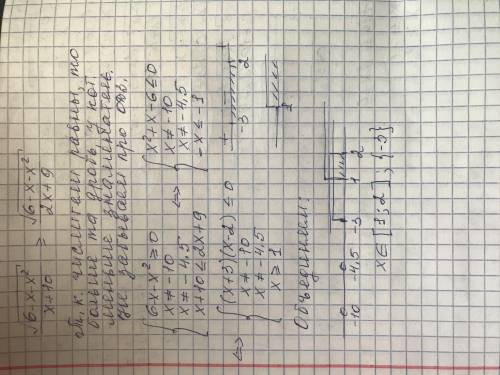 √6-x-x² / x+10 ≥ √6-x-x² / 2x+9
т.к числители равны, то
больше та дробь, у кот.
меньше знаменатель,
не забываем про одз.
{ 6-x-x² ≥ 0
x ≠ -10
x ≠ -4,5
x+10 ≤ 2x+9
<=> { x²+x-6 ≤ 0
x ≠ -10
x ≠ -4,5
-x ≤ -1
<=> { (x+3)(x-2) ≤ 0
x ≠ -10
x ≠ -4,5
x ≥ 1
+ - +
-3 2
1
Объединим:
-10 -4,5 -3 1 2
x ∈ [1;2] , {-3}